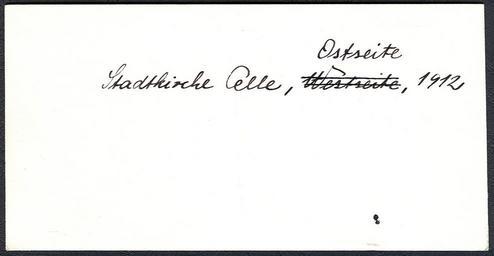 Ostseite
Stadtkirche Celle, Westseite, 1912